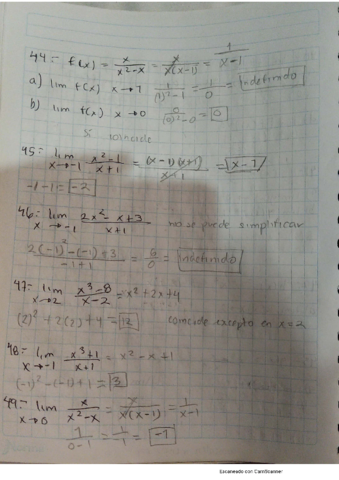 44:- f(x) = x/(x²-x) = x/(x(x-1)) = 1/(x-1)
a) lim f(x) x→1 1/((1)²-1) = 1/0 = Indefinido
b) lim f(x) x→0 0/((0)²-0) = 0
Si coincide
45:- lim x→-1 (x²-1)/(x+1) = ((x-1)(x+1))/(x-1) = x-1
-1-1 = -2
46:- lim x→-1 (2x²-x+3)/(x+1) no se puede simplificar
(2(-1)²-(-1)+3)/(-1+1) = 6/0 = Indefinido
47:- lim x→2 (x³-8)/(x-2) = x²+2x+4
(2)²+2(2)+4 = 12 coincide excepto en x=2
48:- lim x→-1 (x³+1)/(x+1) = x²-x+1
(-1)²-(-1)+1 = 3
49:- lim x→0 x/(x²-x) = x/(x(x-1)) = 1/(x-1)
1/(0-1) = 1/-1 = -1
Escaneado con CamScanner